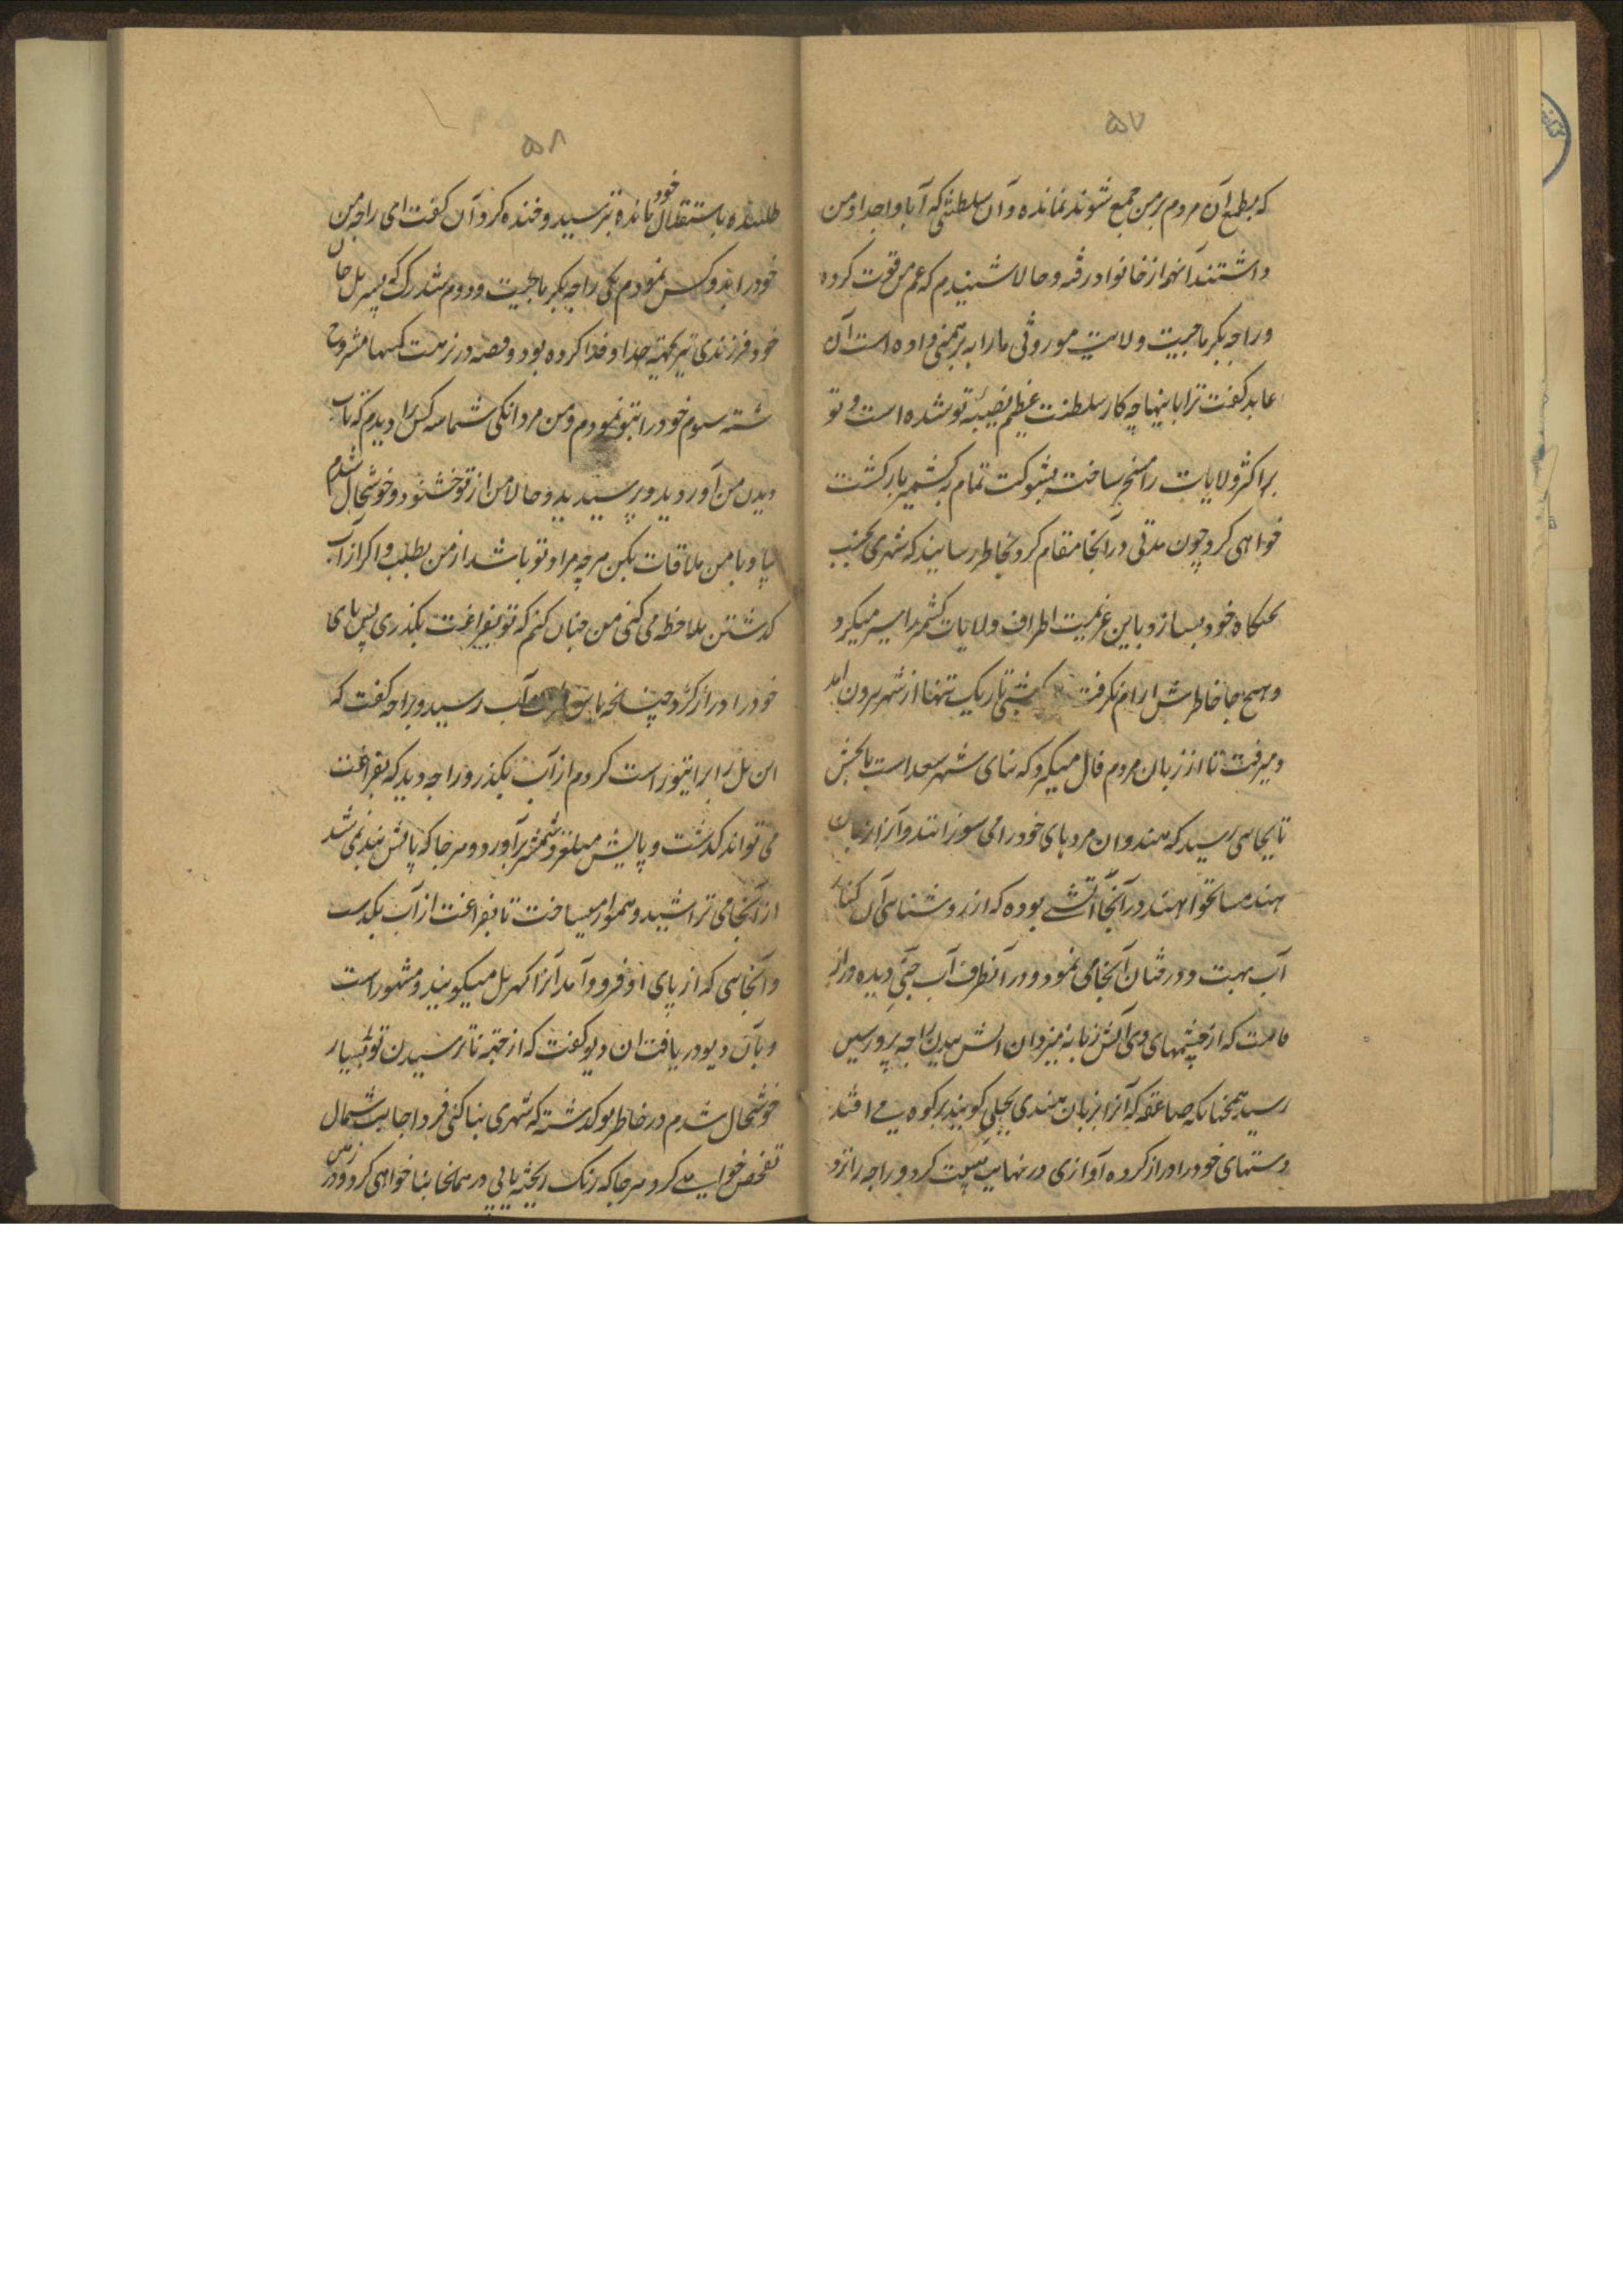 ۵۷
که بطمع آن مردم بر من جمع شوند نمانده و آن سلطنتی که آبا و اجداد من
داشتند آنهم از خانواد رفته و حالا شنیدم که عم من فوت کرده
و راجه بکرماجیت ولایت موروثی ما را به برهمنی داده است آن
عابد کفت ترا باینها چه کار سلطنت عظیم نصیبه تو شده است و تو
بر اکثر ولایات را مسخر ساخته بشوکت تمام بکشمیر باز کشت
خواهی کرد چون مدتی در آنجا مقام کرد بخاطر رسانید که شهری بجهت
تختکاه خود بسازد باین عزیمت اطراف ولایات کشمیر را سیر میکرد
و هیچ جا خاطرش ارام نکرفت شبی تاریک تنها از شهر بیرون امد
و میرفت تا از زبان مردم فال میکیرد که بنای شهر سعد است یا نحس
تا بجایی رسید که هندوان مردهای خود را می سوزانند و آنرا بزبان
هند مسان خوانند در آنجا آتشی بوده که از روشنایی آن کنار
آب بهت و درختان آنجا می نمود و در آنطرف آب جنی دیده دراز
قامت که از چشمهای وی آتش زبانه میزد آن اتش بدین راجه پرورسین
رسید همچنانکه صاعقه که آنرا بزبان هندی بجلی کویند بر کوه می افتد
دستهای خود را دراز کرده آوازی در نهایت هیبت کرد و راجه را نزد
۵۸
طلبیده باستقلال خود مانده نترسید و خنده کرد آن کفت ای راجه من
خود را بدو کس نمودم یکی راجه بکرماجیت و دوم شدرک که پسر بدل جان
خود فرزندی نیز بجهة خدا و فدا کرده بود و قصه در نزهت کتبها مشروح
شته سوم خود را بتو نمودم و من مردانکی شما سه کس را دیدم که تاب
دیدن من آوردید و پرسیدید و حالا من از تو خشنود و خوشحال شدم
بیا و با من ملاقات بکن هرچه مراد تو باشد از من بطلب و اکر از آب
کدشتن ملاحظه می کنی من چنان کنم که تو بفراغت بکذری پس پای
خود را دراز کرد چنانچه آب رسید و براجه کفت که
این پل را برای تو راست کردم از آب بکذر و راجه دید که بفراغت
می تواند کدشت و پایش میلغزد شمشیر برآورد و هرجا که پایش بند نمی شد
از آنجا می تراشید و هموار میساخت تا بفراغت از آب بکدست
و آنجایی که از پای او فرود آمد آنرا کهر بل میکویند و مشهور است
و بآن دیو دریافت ان دیو کفت که از جهة ناترسیدن تو بسیار
خوشحال شدم در خاطر تو کدشته که شهری بنا کنی فردا جانب شمال
تفحص خواهی کرد هرجا که رنک ریخته یابی در همانجا بنا خواهی کرد و در زمین